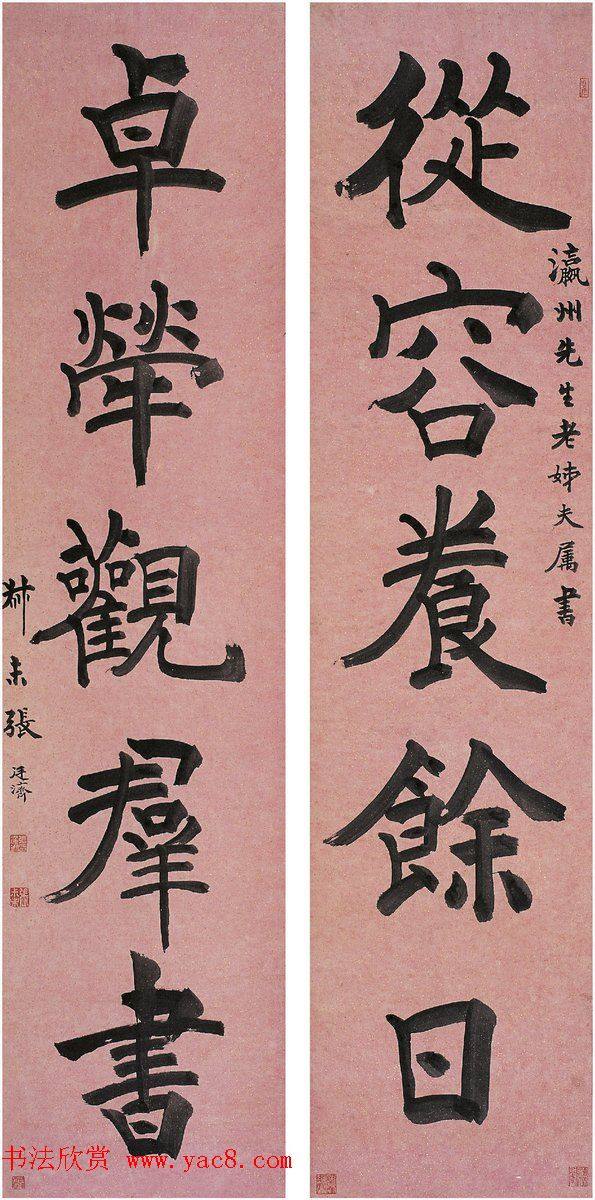 瀛州先生老姊夫属書
從容養餘日
卓犖觀羣書
尗未張廷濟
书法欣赏 www.yac8.com